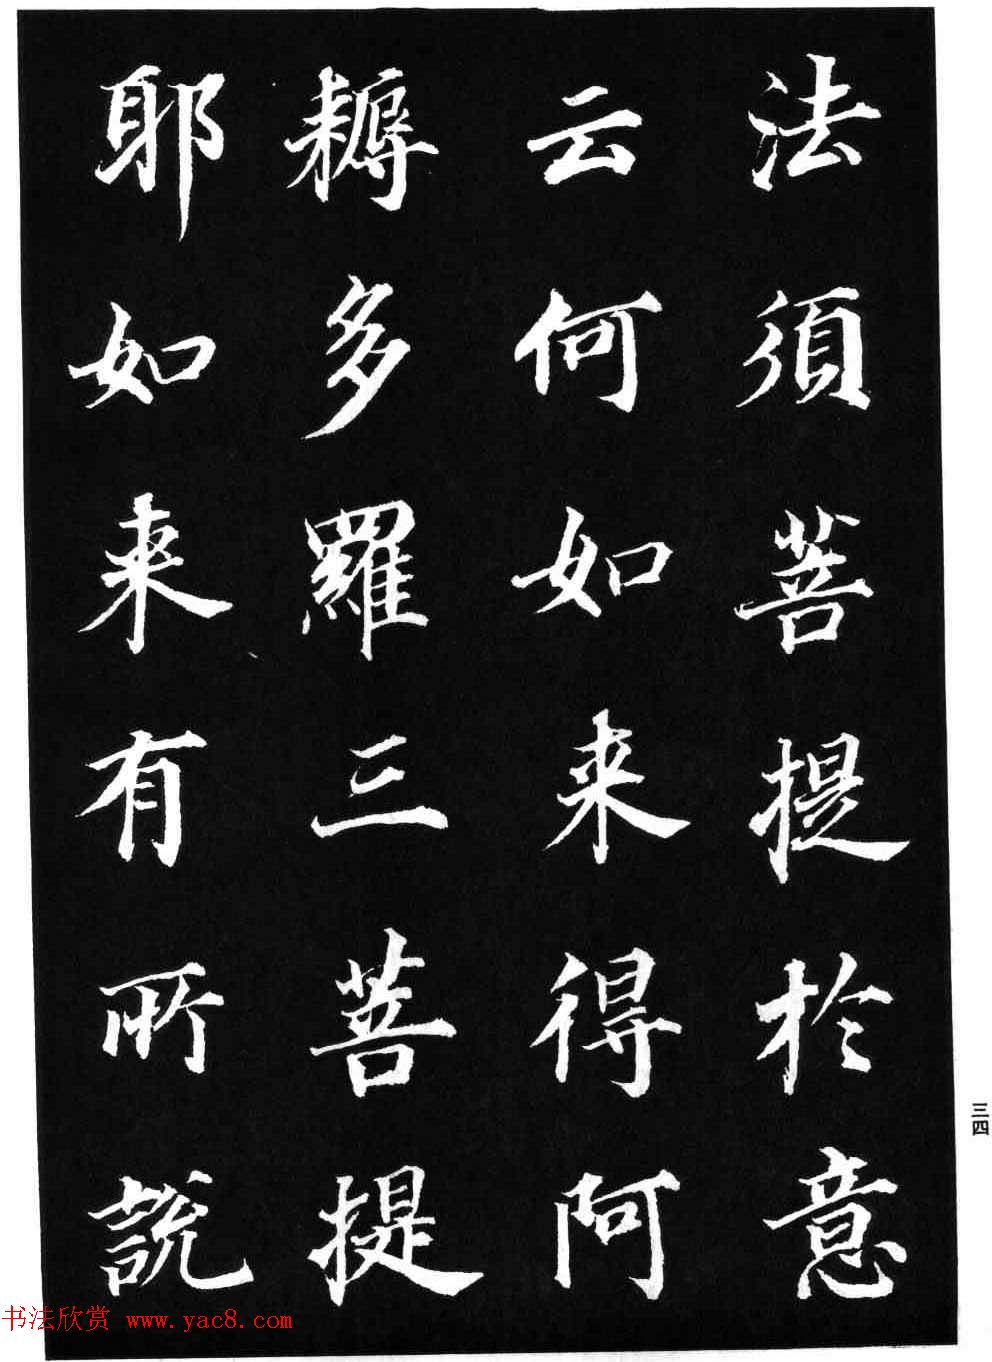 法須菩提於意
云何如来得阿
耨多羅三菩提
耶如来有所說
三四
书法欣赏 www.yac8.com